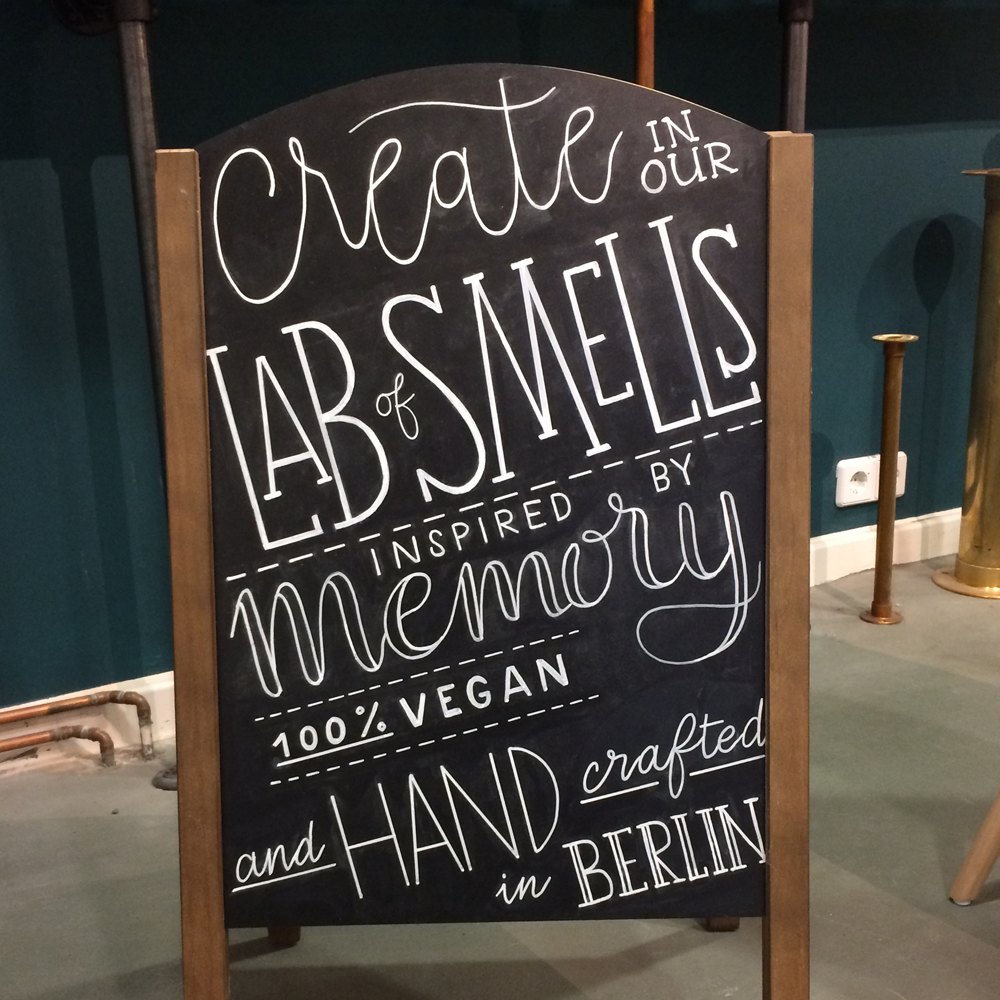 Create IN OUR
LAB of SMELLS
INSPIRED BY
memory
100% VEGAN
and HAND crafted
in BERLIN